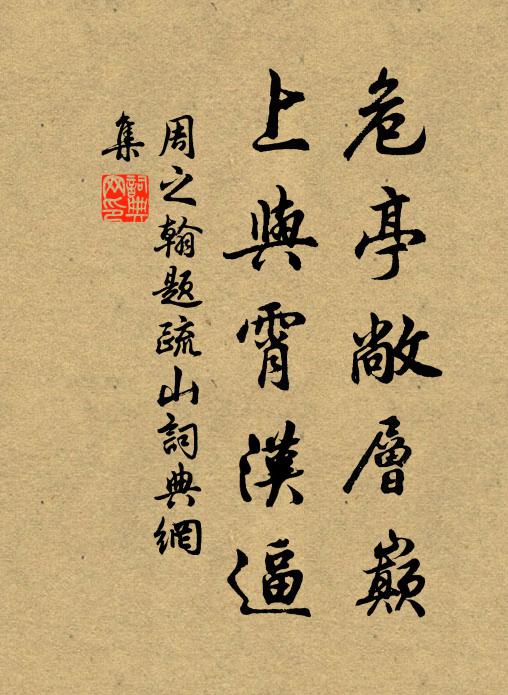 危亭敞層巔
上與霄漢逼
周之翰題疏山詞典網
集
詞典網印